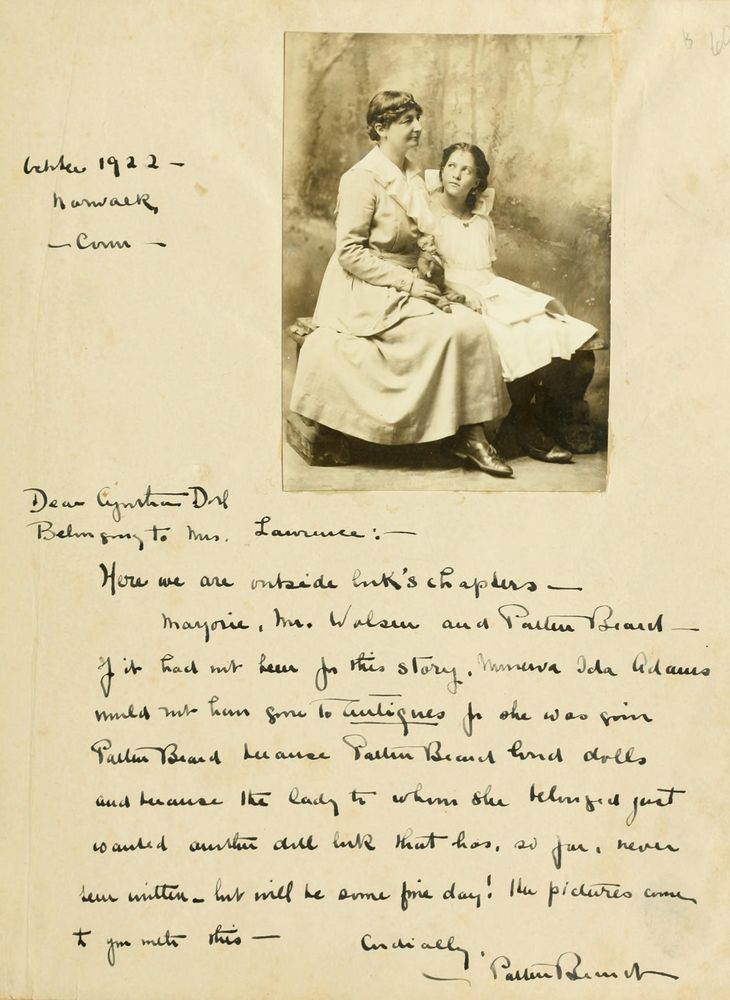 October 1922 —
Norwalk,
— Conn —
Dear Cynthia Doll
Belonging to Mrs. Lawrence: —
Here we are outside book's chapters —
Marjorie, Mr. and Patten Beard —
If it had not been for this story, Minerva Ida Adams
would not have gone to Antiques for she was given
Patten Beard because Patten Beard loved dolls
and because the lady to whom she belonged just
wanted another doll book that has, so far, never
been written — but will be some fine day! The pictures come
to you with this —
Cordially,
— Patten Beard —